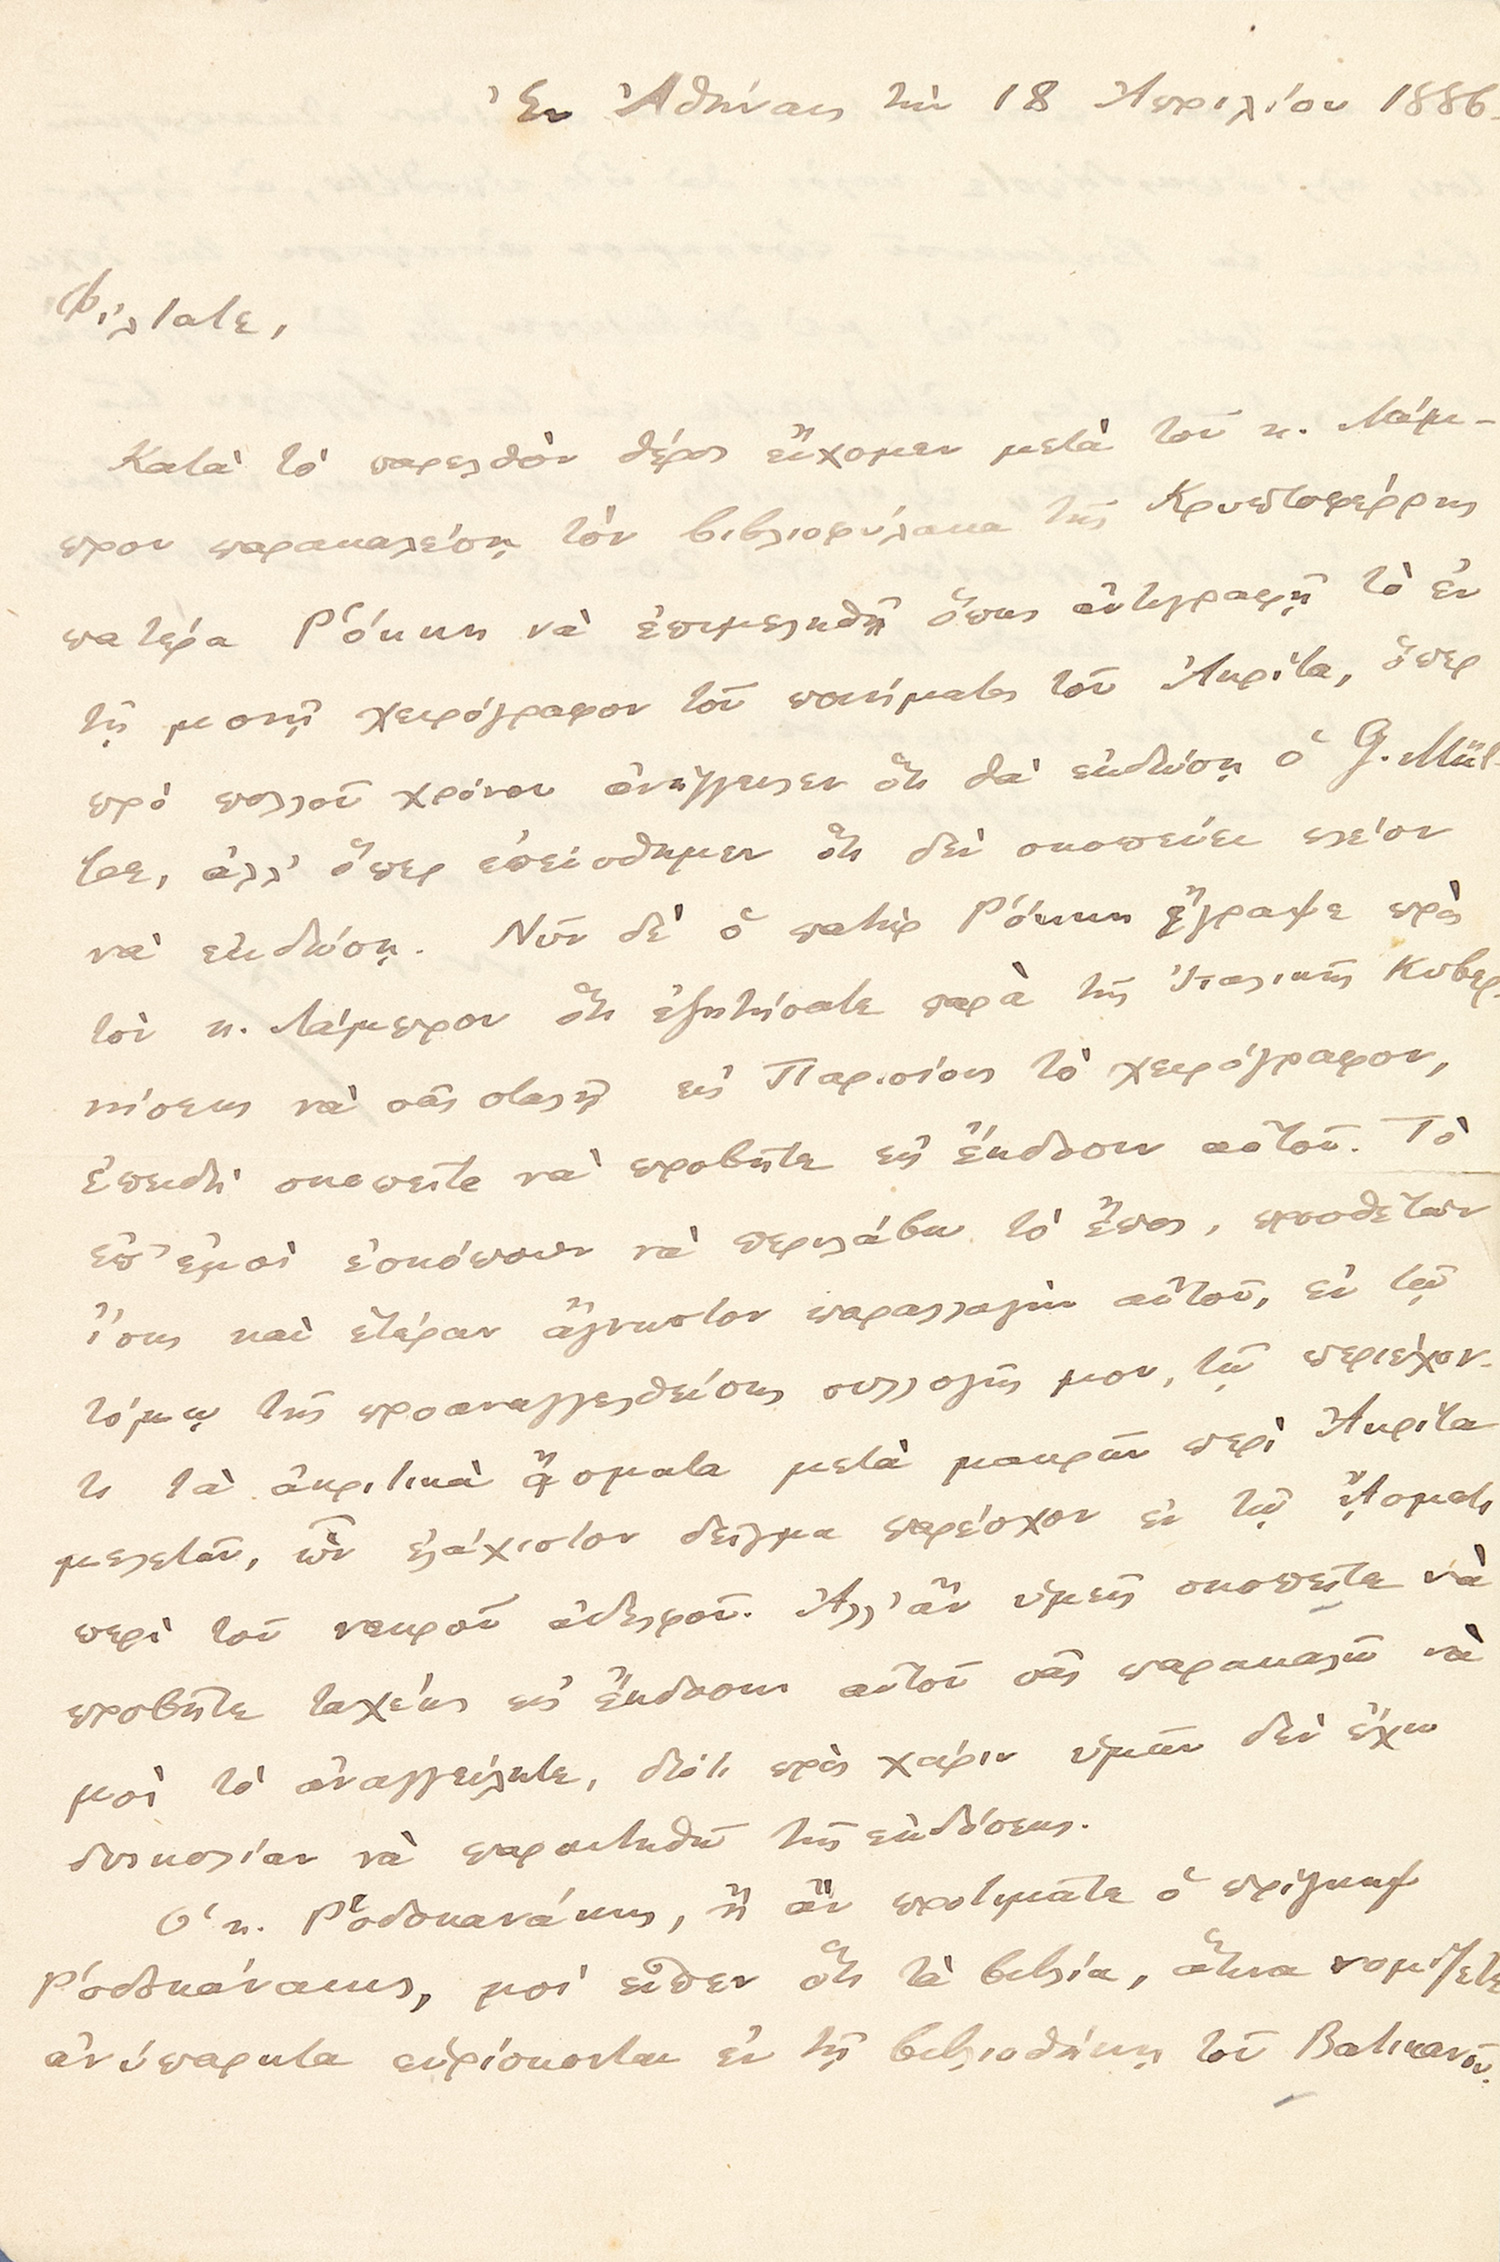 Ἐν Ἀθήναις τῇ 18 Ἀπριλίου 1886.
Φίλτατε,
Κατὰ τὸ παρελθὸν θέρος εἴχομεν μετὰ τοῦ κ. Λάμ-
πρου παρακαλέσῃ τὸν βιβλιοφύλακα τῆς Κρυπτοφέρρης
πατέρα Ῥόκκη νὰ ἐπιμεληθῇ ὅπως ἀντιγραφῇ τὸ ἐν
τῇ μονῇ χειρόγραφον τοῦ ποιήματος τοῦ Ἀκρίτα, ὅπερ
πρὸ πολλοῦ χρόνου ἀνήγγειλεν ὅτι θὰ ἐκδώσῃ ὁ G. Mül-
ler, ἀλλ' ὅπερ ἐπείσθημεν ὅτι δὲν σκοπεύει πλέον
νὰ ἐκδώσῃ. Νῦν δὲ ὁ πατὴρ Ῥόκκη ἔγραψε πρὸς
τὸν κ. Λάμπρον ὅτι ἐζητήσατε παρὰ τῆς Ἰταλικῆς Κυβερ-
νήσεως νὰ σᾶς σταλῇ εἰς Παρισίους τὸ χειρόγραφον,
ἐπειδὴ σκοπεῖτε νὰ προβῆτε εἰς ἔκδοσιν αὐτοῦ. Τὸ
ἐπ' ἐμοὶ ἐσκόπουν νὰ περιλάβω τὸ ἔπος, προσθέτων
ἴσως καὶ ἑτέραν ἄγνωστον παραλλαγὴν αὐτοῦ, ἐν τῷ
τόμῳ τῆς προαναγγελθείσης συλλογῆς μου, τῷ περιέχον-
τι τὰ ἀκριτικὰ ᾄσματα μετὰ μακρῶν περὶ Ἀκρίτα
μελετῶν, ὧν ἐλάχιστον δεῖγμα παρέσχον ἐν τῷ ᾌσματι
περὶ τοῦ νεκροῦ ἀδελφοῦ. Ἀλλ' ἂν ὑμεῖς σκοπεῖτε νὰ
προβῆτε ταχέως εἰς ἔκδοσιν αὐτοῦ σᾶς παρακαλῶ νὰ
μοὶ τὸ ἀναγγείλητε, διότι πρὸς χάριν ὑμῶν δὲν ἔχω
δυσκολίαν νὰ παραιτηθῶ τῆς ἐκδόσεως.
Ὁ κ. Ῥοδοκανάκης, ἢ ἂν προτιμᾶτε ὁ πρίγκηψ
Ῥοδοκανάκης, μοὶ εἶπεν ὅτι τὰ βιβλία, ἅτινα νομίζετε
ἀνύπαρκτα εὑρίσκονται ἐν τῇ βιβλιοθήκῃ τοῦ Βατικανοῦ.